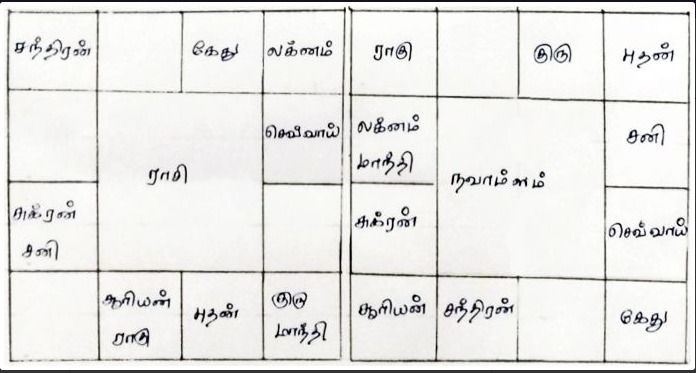 சந்திரன் கேது லக்னம்
செவ்வாய்
ராசி
சுக்ரன்
சனி
சூரியன்
ராகு
புதன்
குரு
மாந்தி
ராகு குரு புதன்
லக்னம்
மாந்தி
சனி
நவாம்ஸம்
சுக்ரன்
செவ்வாய்
சூரியன் சந்திரன் கேது